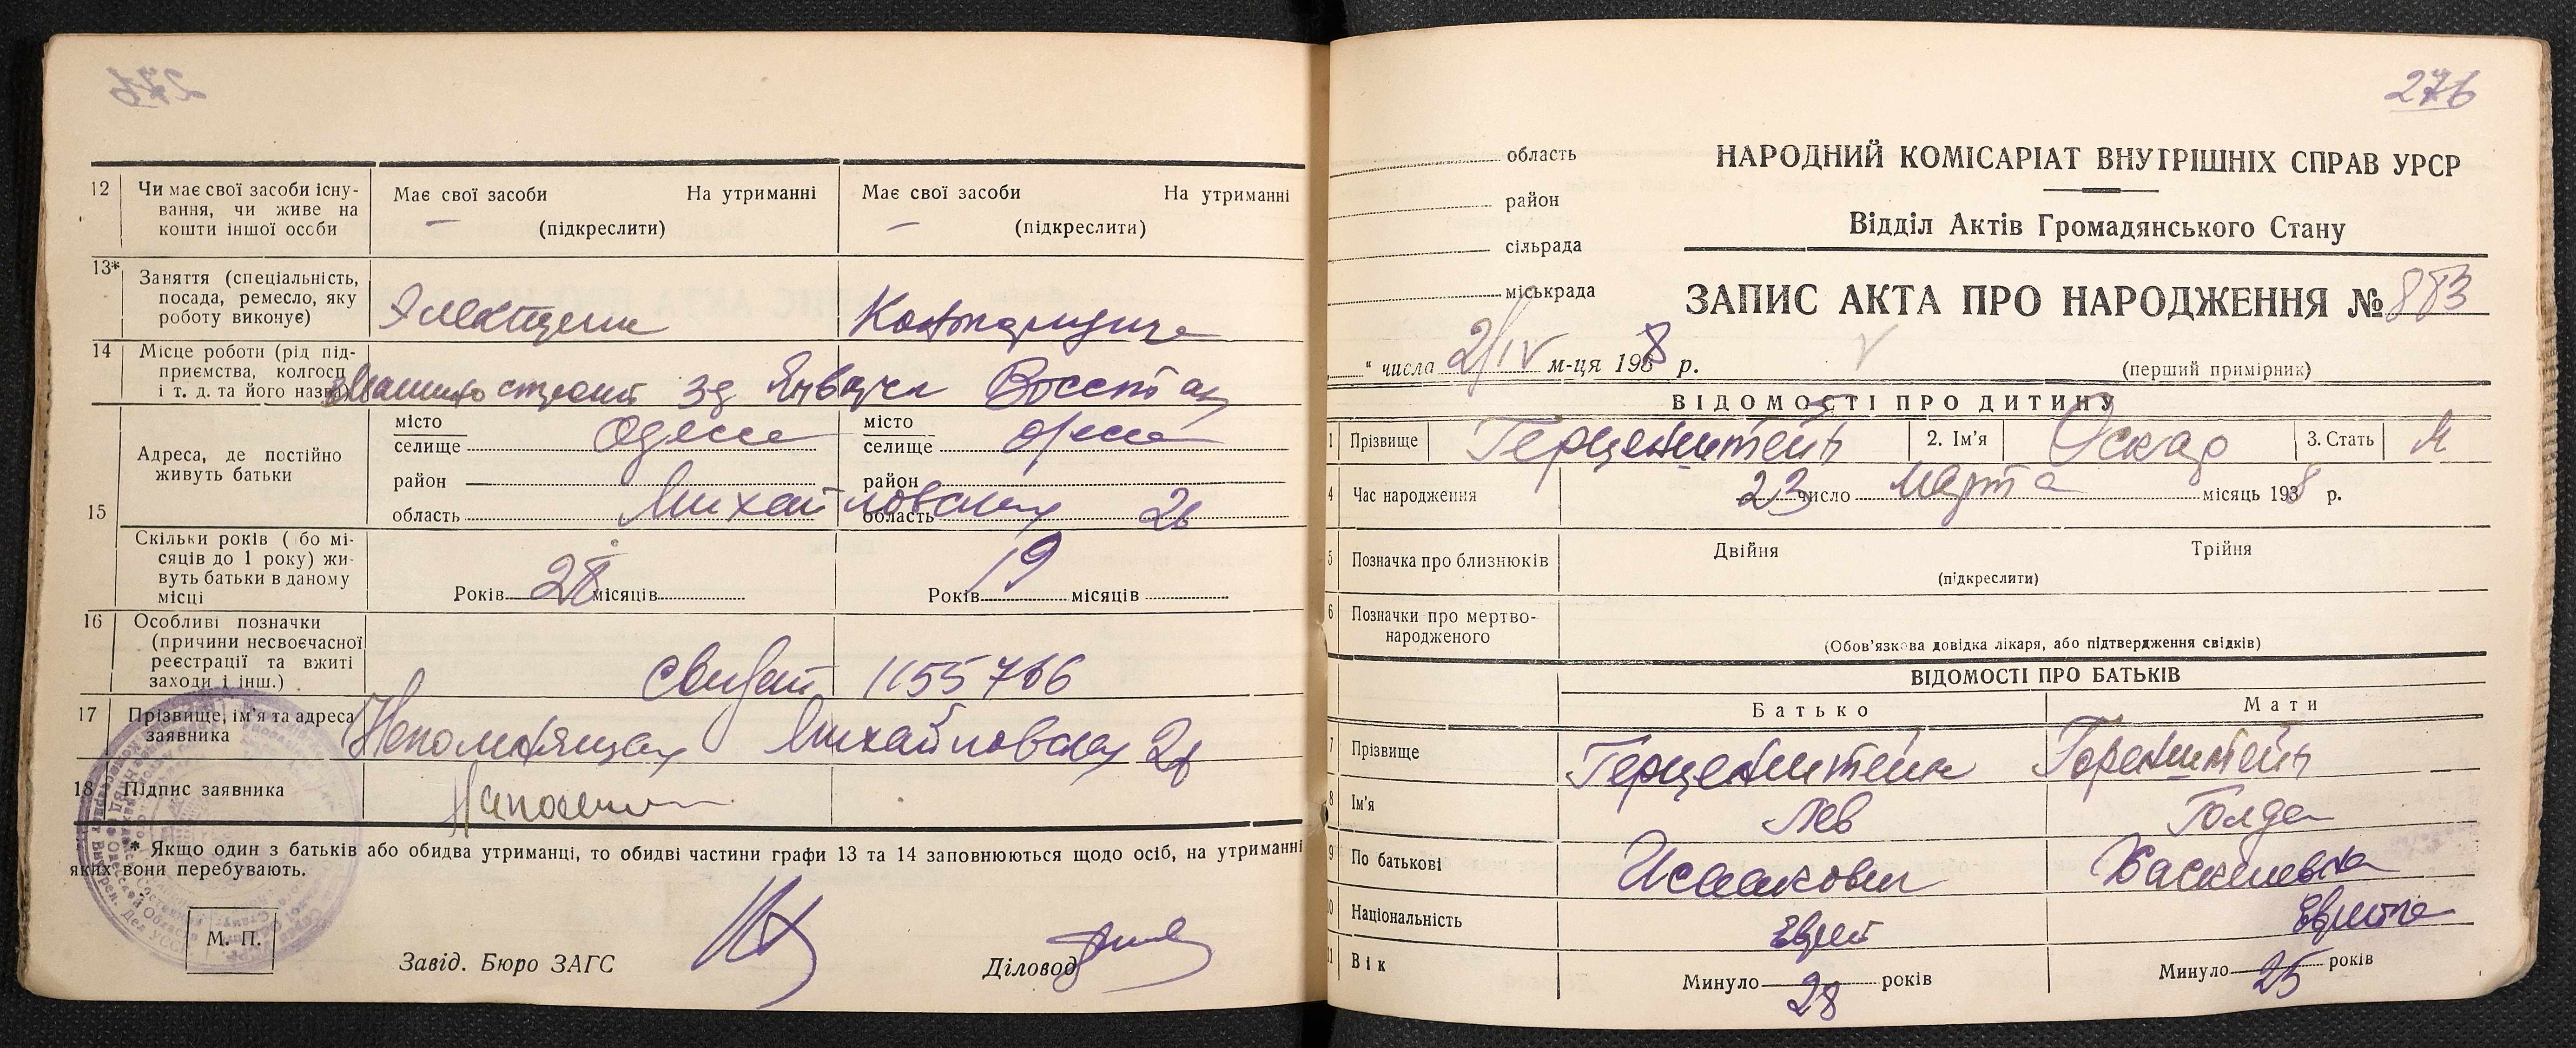 276
12 Чи має свої засоби існу-
вання, чи живе на
кошти іншої особи
Має свої засоби На утриманні
(підкреслити)
Має свої засоби На утриманні
(підкреслити)
13* Заняття (спеціальність,
посада, ремесло, яку
роботу виконує)
14 Місце роботи (рід під-
приємства, колгосп
і т. д. та його назва)
зд Января Восстан
15 Адреса, де постійно
живуть батьки
місто
селище Одесса
район
область
місто
селище Одесса
район
область
Михайловская 26
Скільки років ( бо мі-
сяців до 1 року) жи-
вуть батьки в даному
місці
Років 28 місяців
Років 19 місяців
16 Особливі позначки
(причини несвоєчасної
реєстрації та вжиті
заходи і інш.)
свидет 1155766
17 Прізвище, ім'я та адреса
заявника
Непомнящая Михайловская 26
18 Підпис заявника
* Якщо один з батьків або обидва утриманці, то обидві частини графи 13 та 14 заповнюються щодо осіб, на утриманні
яких вони перебувають.
М. П.
Завід. Бюро ЗАГС
Діловод
276
область
район
сільрада
міськрада
НАРОДНИЙ КОМІСАРІАТ ВНУТРІШНІХ СПРАВ УРСР
Відділ Актів Громадянського Стану
ЗАПИС АКТА ПРО НАРОДЖЕННЯ № 883
" числа 2/IV м-ця 1938 р.
(перший примірник)
ВІДОМОСТІ ПРО ДИТИНУ
1 Прізвище Герценштейн 2. Ім'я Оскар 3. Стать М
4 Час народження 23 число марта місяць 1938 р.
5 Позначка про близнюків Двійня Трійня
(підкреслити)
6 Позначки про мертво-
народженого
(Обов'язкова довідка лікаря, або підтвердження свідків)
ВІДОМОСТІ ПРО БАТЬКІВ
Батько Мати
7 Прізвище Герценштейн Горенштейн
8 Ім'я Лев Голда
9 По батькові Исаакович Хаскелевна
10 Національність Еврей Еврейка
11 Вік Минуло 28 років Минуло 25 років